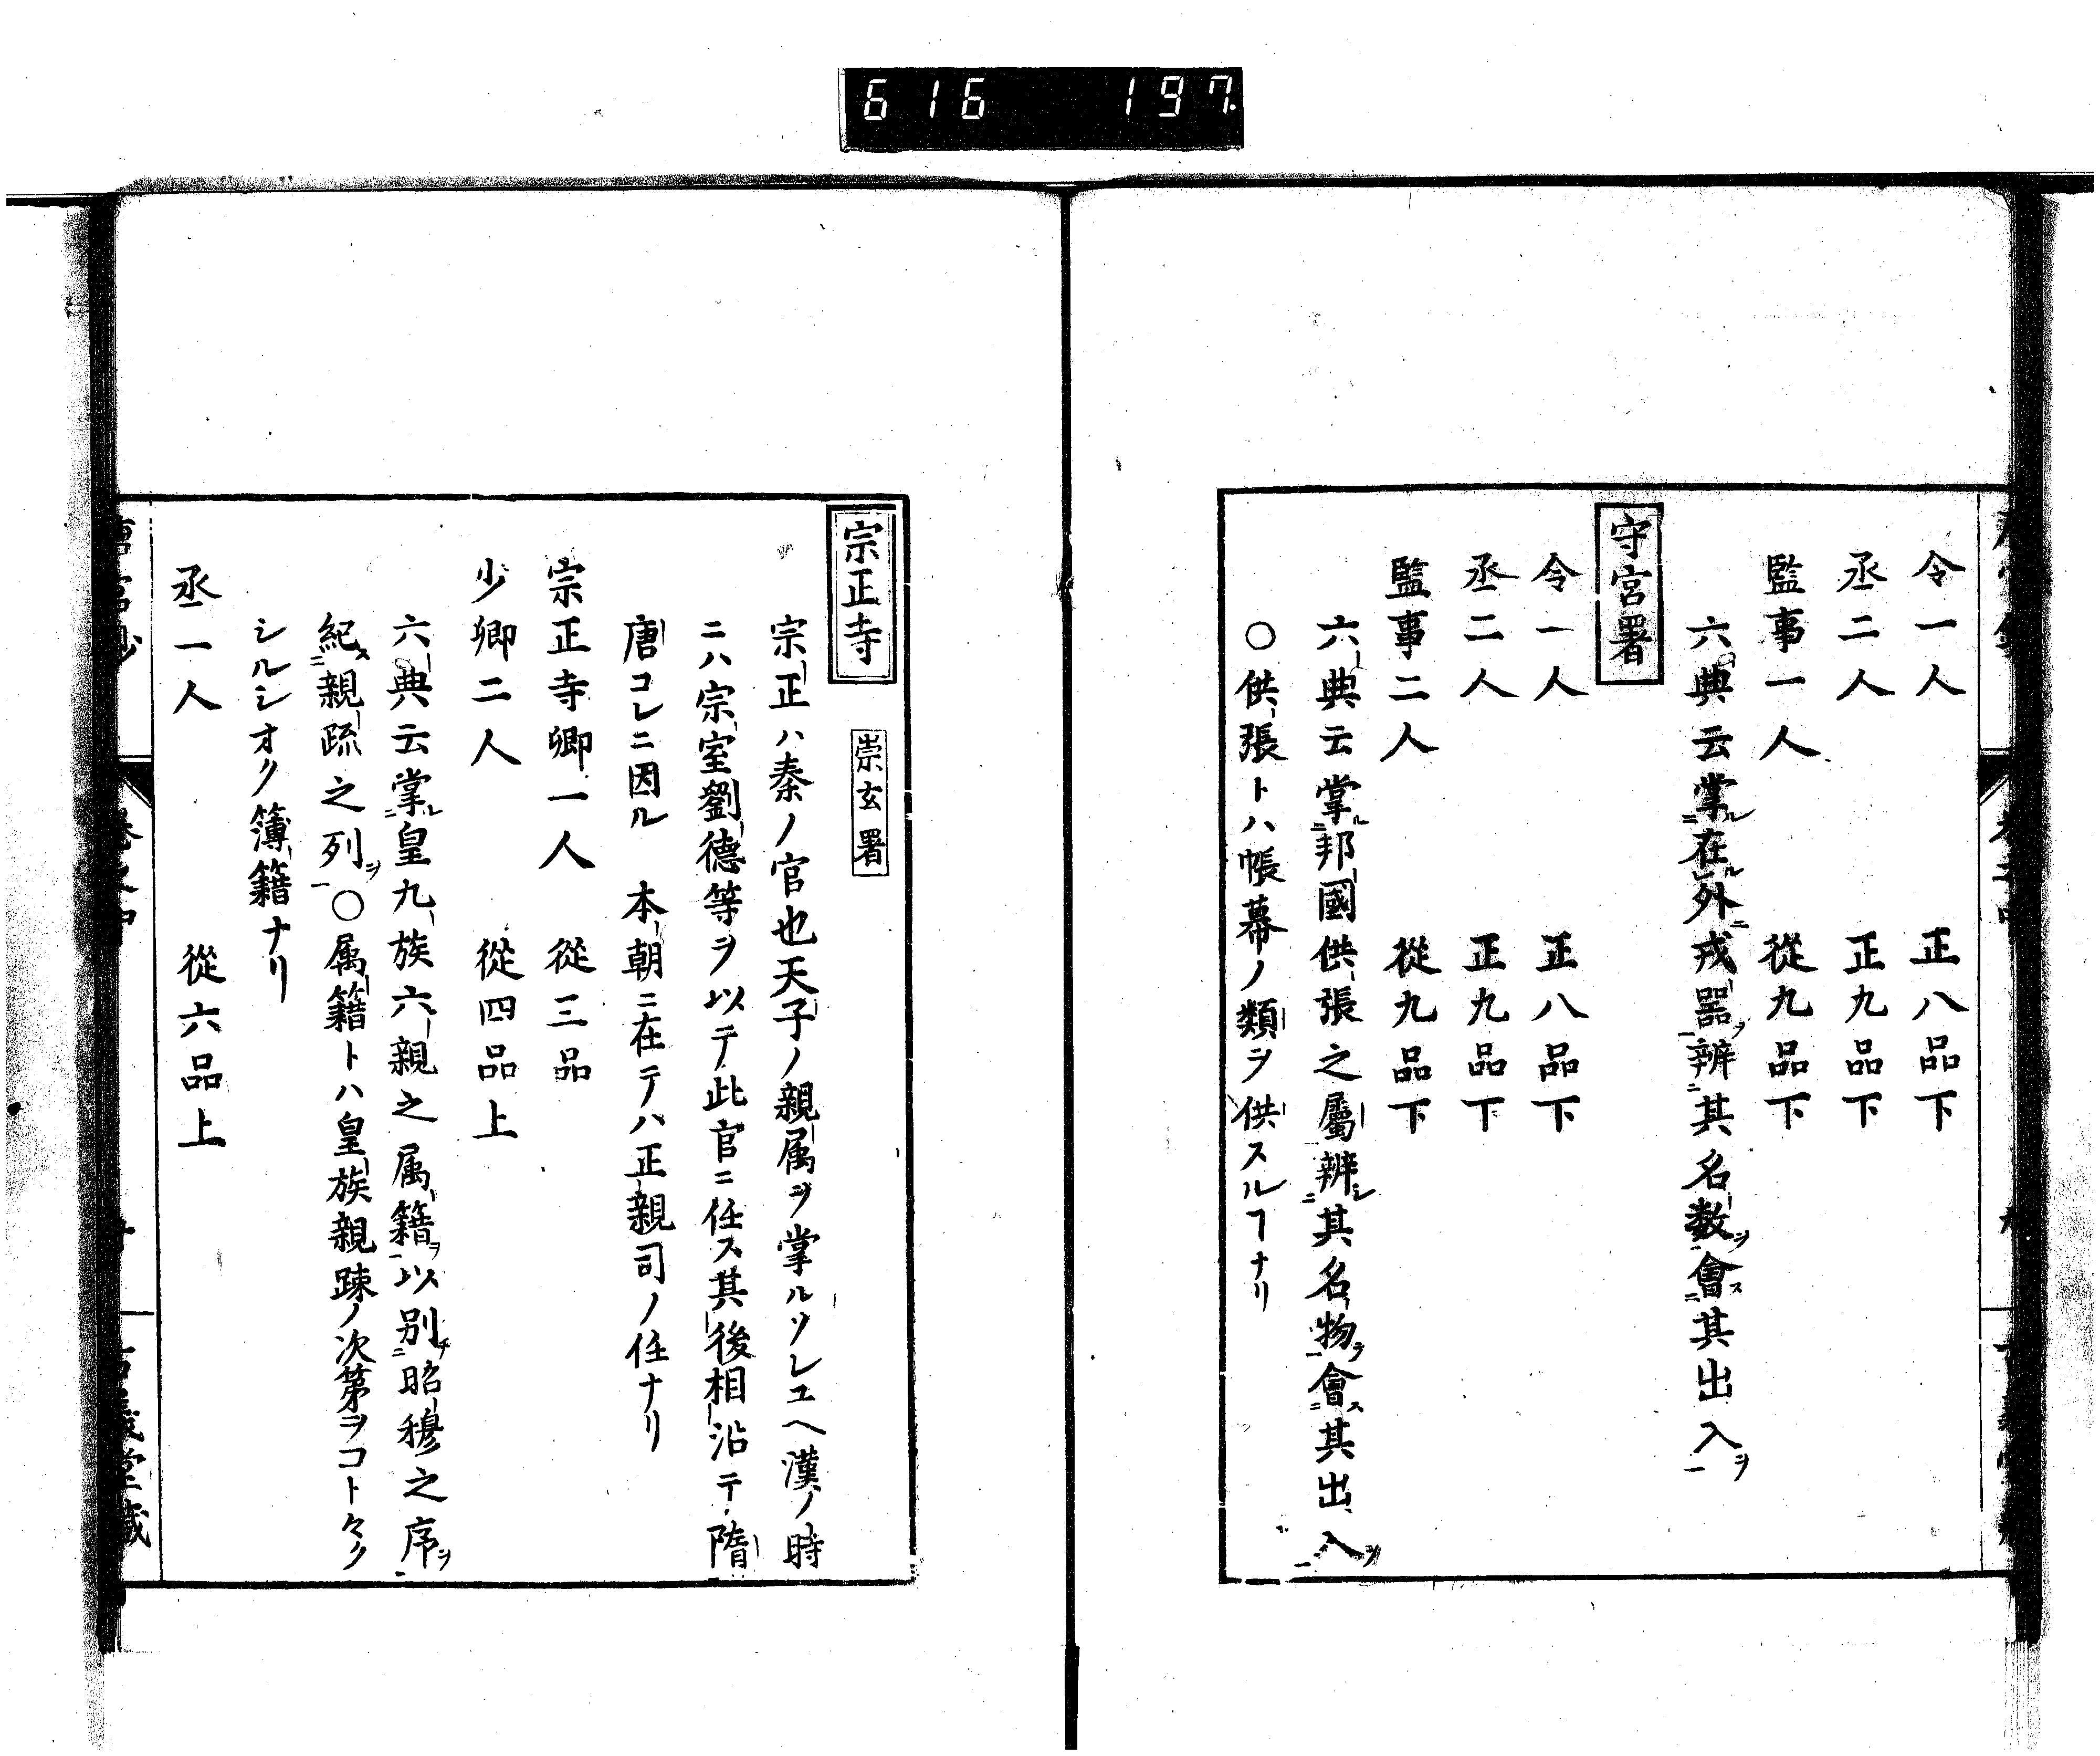 616 197
令一人 正八品下
丞二人 正九品下
監事一人 從九品下
六典云掌ル二在ル外ニ戎器ヲ一辨二其名数ヲ一會ス二其出入ヲ一
守宮署
令一人 正八品下
丞二人 正九品下
監事二人 從九品下
六典云掌ル二邦國供張之屬辨シ二其名物ヲ一會ス二其出入ヲ一
〇供張トハ帳幕ノ類ヲ供スルヿナリ
宗正寺 崇玄署
宗正ハ秦ノ官也天子ノ親属ヲ掌ルソレユヘ漢ノ時
ニハ宗室劉德等ヲ以テ此官ニ任ス其後相沿テ隋
唐コレニ因ル 本朝ニ在テハ正親司ノ任ナリ
宗正寺卿一人 從三品
少卿二人 從四品上
六典云掌ル二皇九族六親之属籍ヲ一以別チ二昭穆之序ヲ一
紀ス二親疏之列ヲ一〇属籍トハ皇族親踈ノ次第ヲコトヾク
シルシオク簿籍ナリ
丞一人 從六品上
唐官鈔 卷之中 古義堂藏